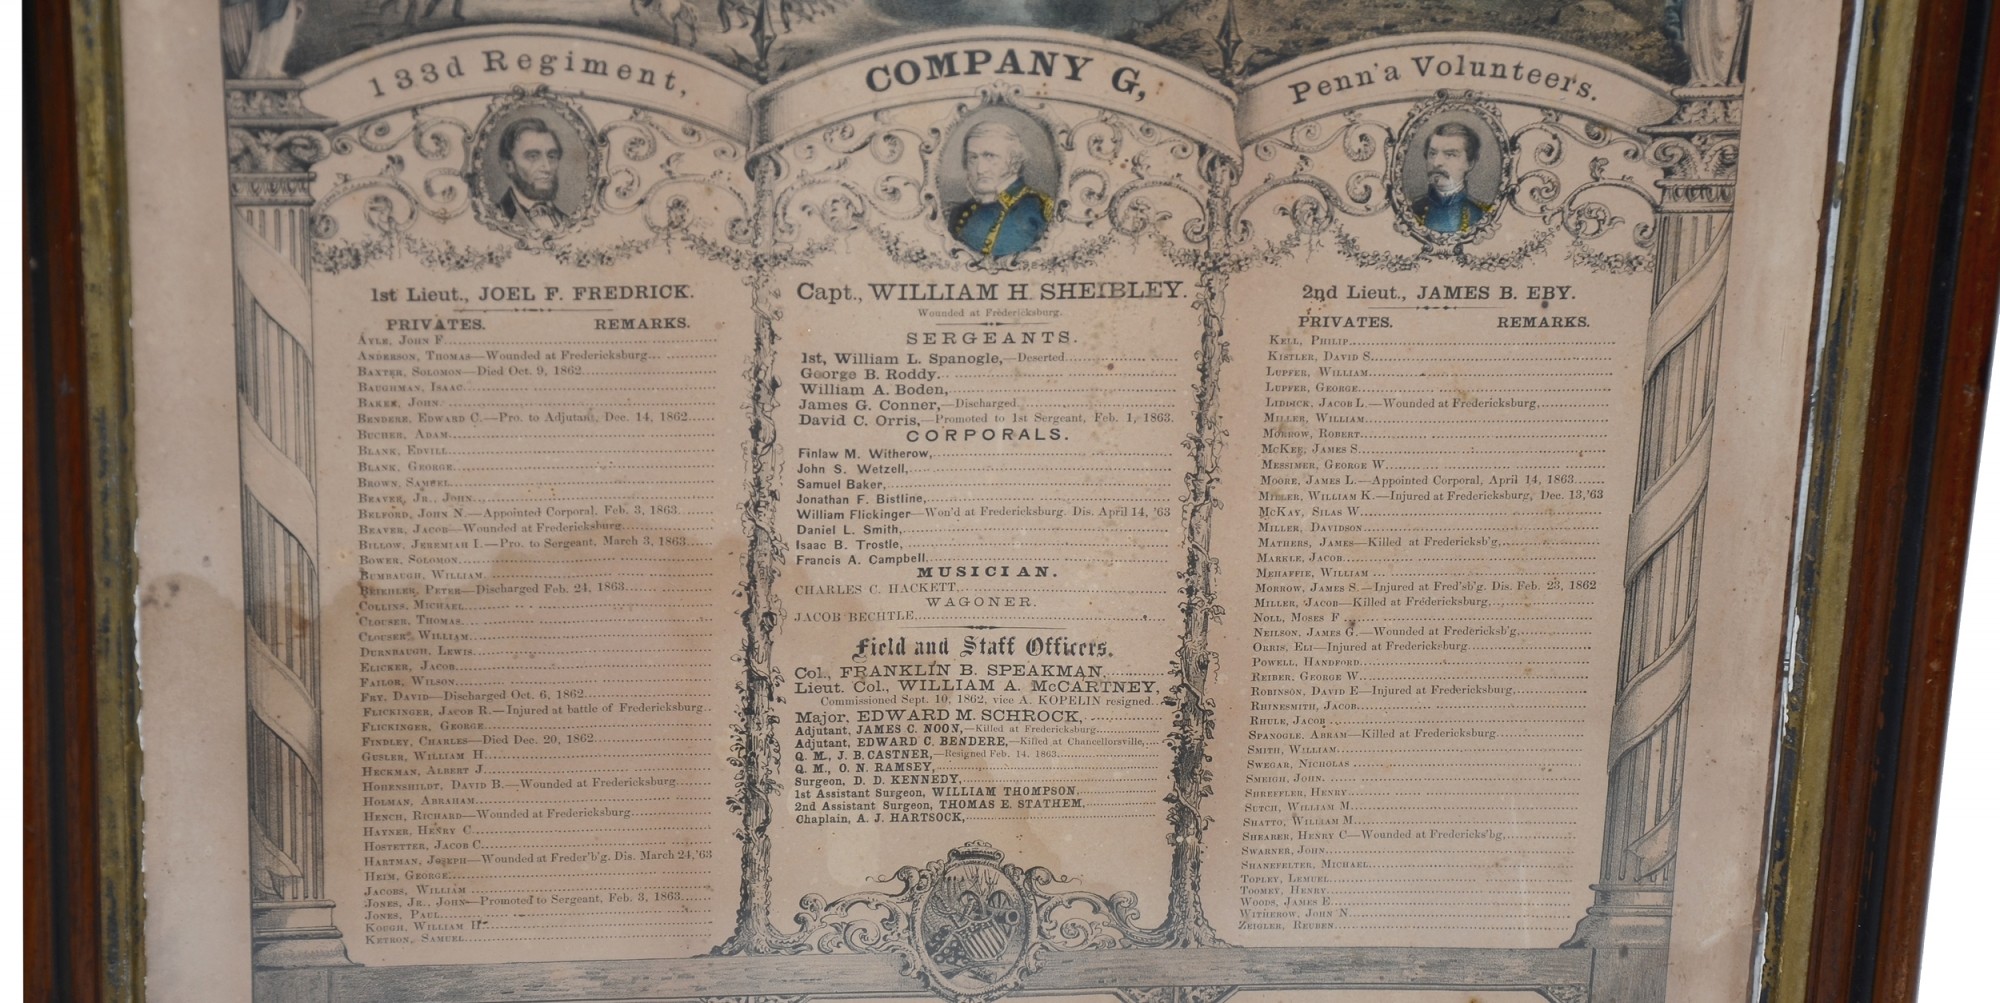 133d Regiment,
COMPANY G,
Penn'a Volunteers.
1st Lieut., JOEL F. FREDRICK.
PRIVATES. REMARKS.
AYLE, JOHN F.
ANDERSON, THOMAS—Wounded at Fredericksburg
BAXTER, SOLOMON—Died Oct. 9, 1862
BAUGHMAN, ISAAC
BAKER, JOHN
BENDERE, EDWARD C.—Pro. to Adjutant, Dec. 14, 1862
BUCHER, ADAM
BLANK, EDVILL
BLANK, GEORGE
BROWN, SAMUEL
BEAVER, JR., JOHN
BELFORD, JOHN N.—Appointed Corporal, Feb. 3, 1863
BEAVER, JACOB—Wounded at Fredericksburg
BILLOW, JEREMIAH I.—Pro. to Sergeant, March 3, 1863
BOWER, SOLOMON
BUMBAUGH, WILLIAM
PETER—Discharged Feb. 24, 1863
COLLINS, MICHAEL
CLOUSER, THOMAS
CLOUSER, WILLIAM
DURNBAUGH, LEWIS
ELICKER, JACOB
FAILOR, WILSON
FRY, DAVID—Discharged Oct. 6, 1862
FLICKINGER, JACOB R.—Injured at battle of Fredericksburg
FLICKINGER, GEORGE
FINDLEY, CHARLES—Died Dec. 20, 1862
GUSLER, WILLIAM H.
HECKMAN, ALBERT J.
HOHENSHILDT, DAVID B.—Wounded at Fredericksburg
HOLMAN, ABRAHAM
HENCH, RICHARD—Wounded at Fredericksburg
HAYNER, HENRY C.
HOSTETTER, JACOB C.
HARTMAN, JOSEPH—Wounded at Freder'b'g. Dis. March 24, '63
HEIM, GEORGE
JACOBS, WILLIAM
JONES, JR., JOHN—Promoted to Sergeant, Feb. 3, 1863
JONES, PAUL
KOUGH, WILLIAM H.
KETRON, SAMUEL
Capt., WILLIAM H. SHEIBLEY.
Wounded at Fredericksburg.
SERGEANTS.
1st, William L. Spanogle,—Deserted
George B. Roddy.
William A. Boden,
James G. Conner,—Discharged
David C. Orris,—Promoted to 1st Sergeant, Feb. 1, 1863.
CORPORALS.
Finlaw M. Witherow,
John S. Wetzell,
Samuel Baker,
Jonathan F. Bistline,
William Flickinger—Won'd at Fredericksburg. Dis. April 14, '63
Daniel L. Smith,
Isaac B. Trostle,
Francis A. Campbell,
MUSICIAN.
CHARLES C. HACKETT,
WAGONER.
JACOB BECHTLE,
Field and Staff Officers.
Col., FRANKLIN B. SPEAKMAN,
Lieut. Col., WILLIAM A. McCARTNEY,
Commissioned Sept. 10, 1862, vice A. KOPELIN resigned.
Major, EDWARD M. SCHROCK,
Adjutant, JAMES C. NOON,—Killed at Fredericksburg
Adjutant, EDWARD C. BENDERE,—Killed at Chancellorsville,
Q. M., J. B. CASTNER,—Resigned Feb. 14, 1863
Q. M., O. N. RAMSEY,
Surgeon, D. D. KENNEDY,
1st Assistant Surgeon, WILLIAM THOMPSON,
2nd Assistant Surgeon, THOMAS E. STATHEM,
Chaplain, A. J. HARTSOCK,
2nd Lieut., JAMES B. EBY.
PRIVATES. REMARKS.
KELL, PHILIP
KISTLER, DAVID S.
LUPFER, WILLIAM
LUPFER, GEORGE
LIDDICK, JACOB L.—Wounded at Fredericksburg,
MILLER, WILLIAM
MORROW, ROBERT
McKEE, JAMES S.
MESSIMER, GEORGE W.
MOORE, JAMES L.—Appointed Corporal, April 14, 1863
MILLER, WILLIAM K.—Injured at Fredericksburg, Dec. 13, '63
McKAY, SILAS W.
MILLER, DAVIDSON
MATHERS, JAMES—Killed at Fredericksb'g,
MARKLE, JACOB
MEHAFFIE, WILLIAM
MORROW, JAMES S.—Injured at Fred'sb'g. Dis. Feb. 23, 1862
MILLER, JACOB—Killed at Fredericksburg,
NOLL, MOSES F.
NEILSON, JAMES G.—Wounded at Fredericksb'g,
ORRIS, ELI—Injured at Fredericksburg
POWELL, HANDFORD
REIBER, GEORGE W.
ROBINSON, DAVID E—Injured at Fredericksburg,
RHINESMITH, JACOB
RHULE, JACOB
SPANOGLE, ABRAM—Killed at Fredericksburg
SMITH, WILLIAM
SWEGAR, NICHOLAS
SMEIGH, JOHN
SHREFFLER, HENRY
SUTCH, WILLIAM M.
SHATTO, WILLIAM M.
SHEARER, HENRY C—Wounded at Fredericks'bg,
SWARNER, JOHN
SHANEFELTER, MICHAEL
TOPLEY, LEMUEL
TOOMEY, HENRY
WOODS, JAMES E.
WITHEROW, JOHN N.
ZEIGLER, REUBEN